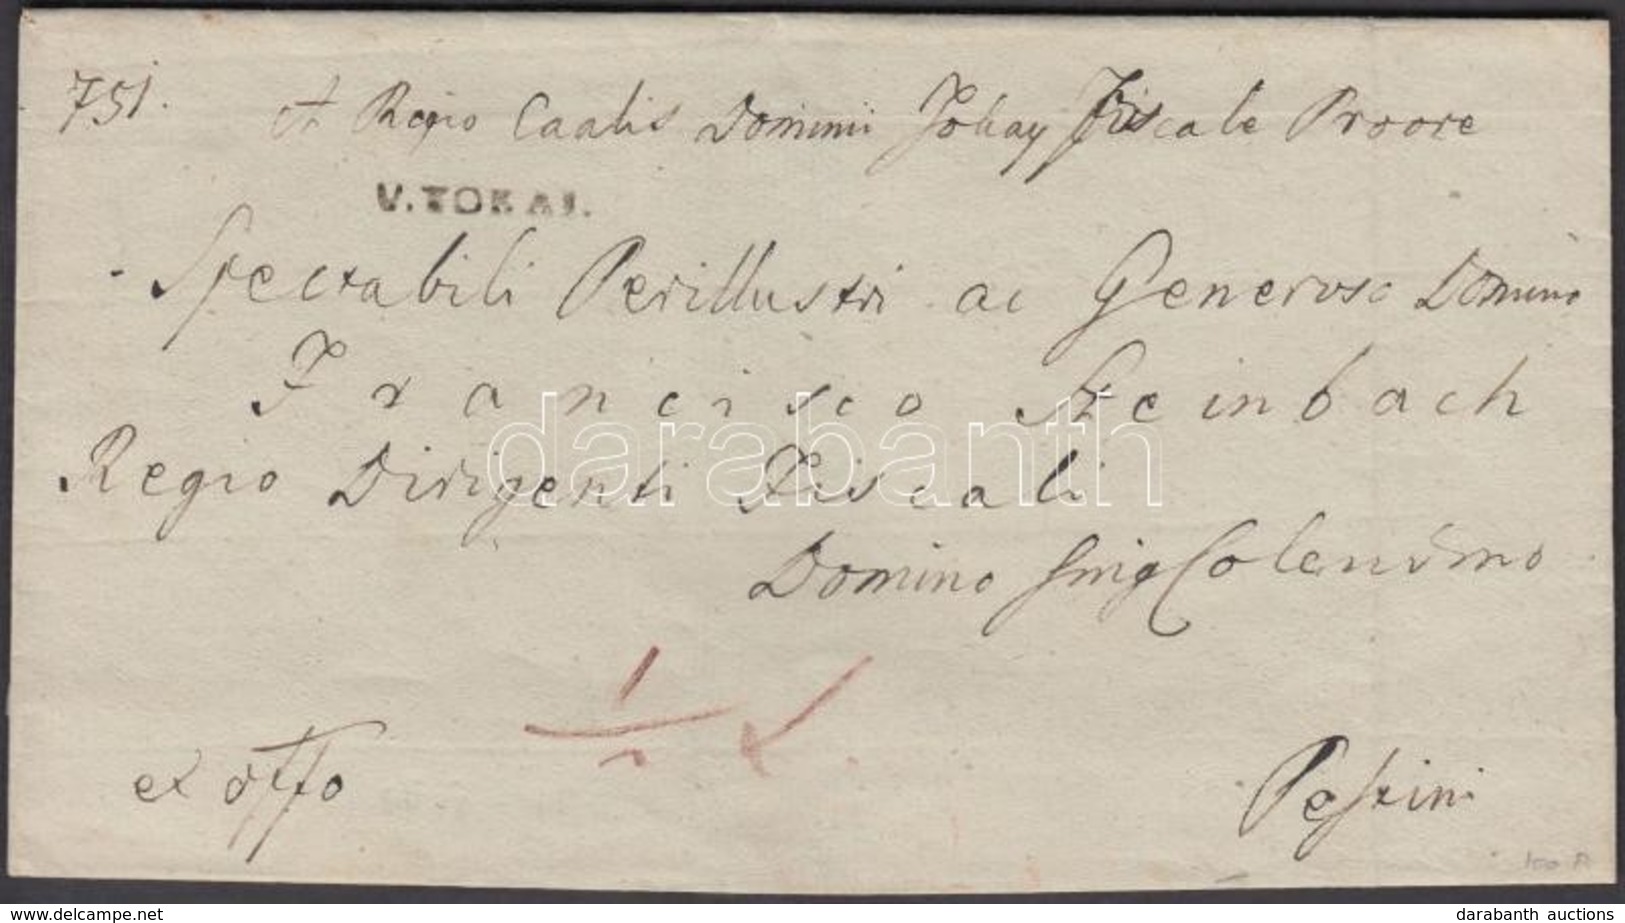 751. A Regio Caalis Dominii Tokay Fiscale Proore
V. TOKAI.
Spectabili Perillustri ac Generoso Domino
Francisco Steinbach
darabanth
Regio Dirigenti Fiscali
Domino Colendsmo
1/2
ex offo
Pestini
100 R
www.delcampe.net
darabanth auctions